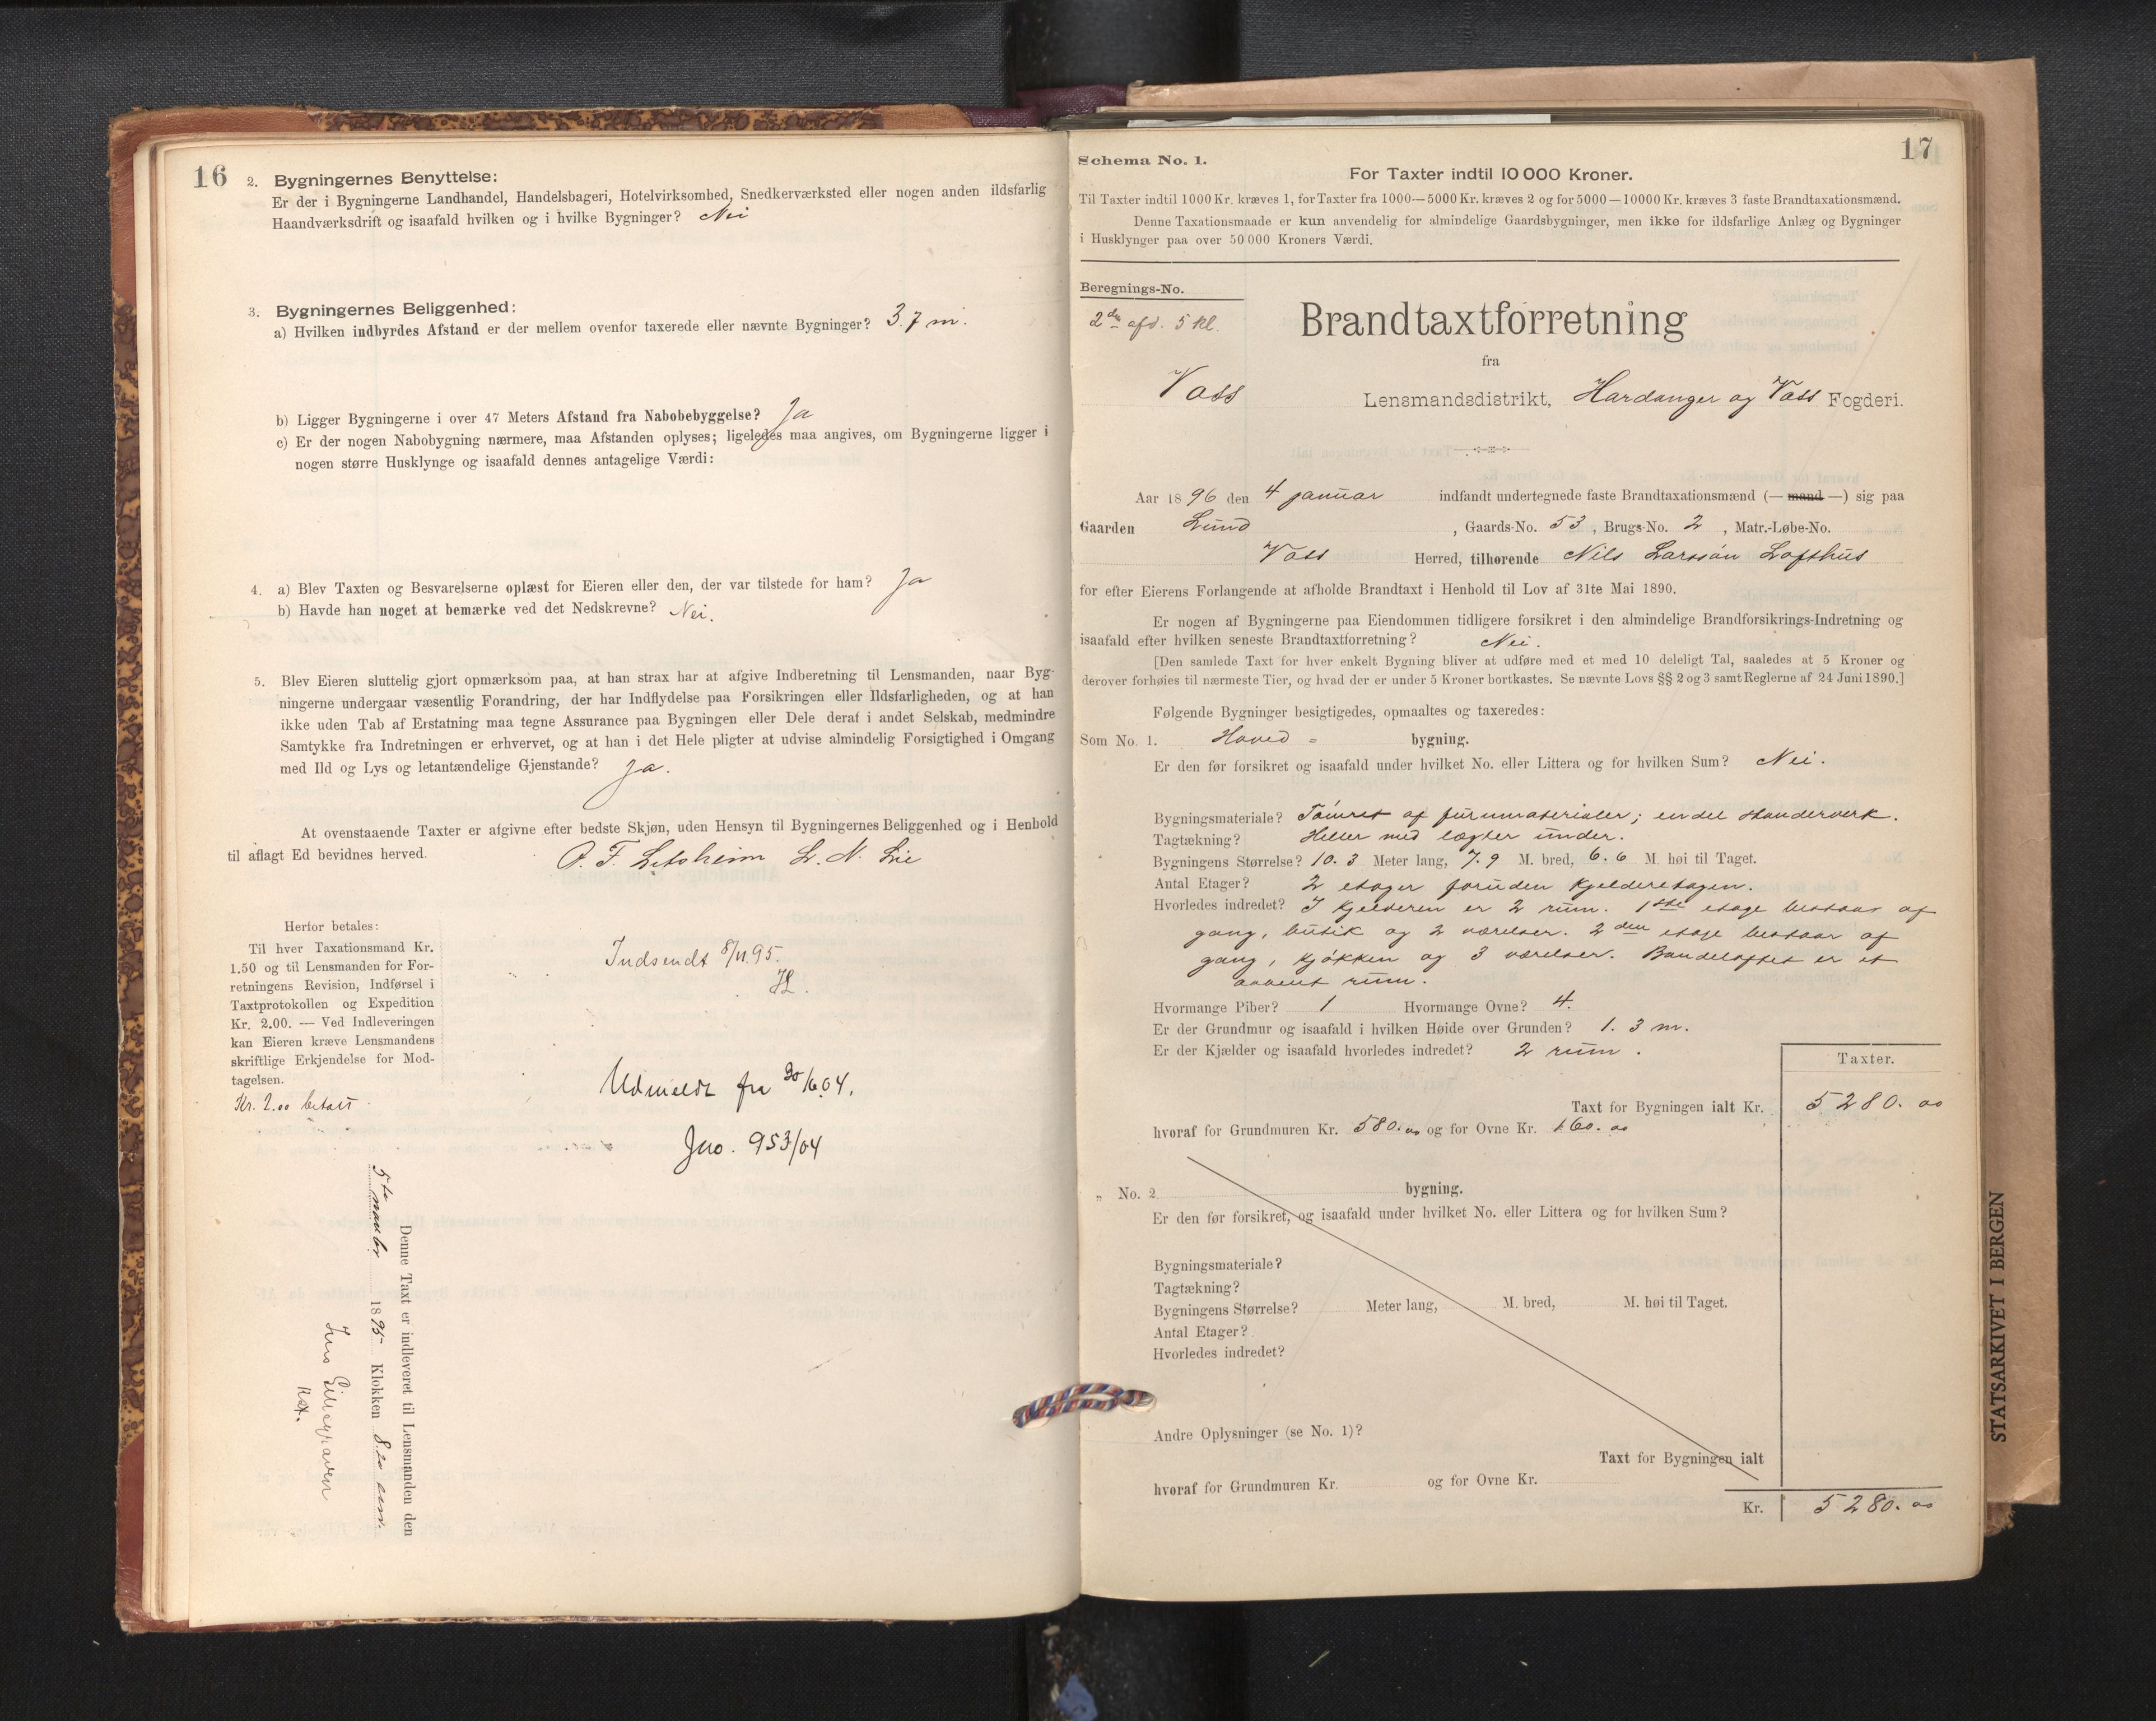 16
2. Bygningernes Benyttelse:
Er der i Bygningerne Landhandel, Handelsbageri, Hotelvirksomhed, Snedkerværksted eller nogen anden ildsfarlig
Haandværksdrift og isaafald hvilken og i hvilke Bygninger? Nei
3. Bygningernes Beliggenhed:
a) Hvilken indbyrdes Afstand er der mellem ovenfor taxerede eller nævnte Bygninger? 3.7 m.
b) Ligger Bygningerne i over 47 Meters Afstand fra Nabobebyggelse? Ja
c) Er der nogen Nabobygning nærmere, maa Afstanden oplyses; ligeledes maa angives, om Bygningerne ligger i
nogen større Husklynge og isaafald dennes antagelige Værdi:
4. a) Blev Taxten og Besvarelserne oplæst for Eieren eller den, der var tilstede for ham? Ja
b) Havde han noget at bemærke ved det Nedskrevne? Nei.
5. Blev Eieren sluttelig gjort opmærksom paa, at han strax har at afgive Indberetning til Lensmanden, naar Byg-
ningerne undergaar væsentlig Forandring, der har Indflydelse paa Forsikringen eller Ildsfarligheden, og at han
ikke uden Tab af Erstatning maa tegne Assurance paa Bygningen eller Dele deraf i andet Selskab, medmindre
Samtykke fra Indretningen er erhvervet, og at han i det Hele pligter at udvise almindelig Forsigtighed i Omgang
med Ild og Lys og letantændelige Gjenstande? Ja.
At ovenstaaende Taxter er afgivne efter bedste Skjøn, uden Hensyn til Bygningernes Beliggenhed og i Henhold
til aflagt Ed bevidnes herved. L. N. Lie
Herfor betales:
Til hver Taxationsmand Kr.
1.50 og til Lensmanden for For-
retningens Revision, Indførsel i
Taxtprotokollen og Expedition
Kr. 2.00. — Ved Indleveringen
kan Eieren kræve Lensmandens
skriftlige Erkjendelse for Mod-
tagelsen.
Kr. 2.00 betalt
Indsendt 8/11 95.
Udmeldt fra 30/6 04.
Jno. 953/04
Denne Taxt er indleveret til Lensmanden den
5te 1895 Klokken
17
Schema No. 1.
For Taxter indtil 10 000 Kroner.
Til Taxter indtil 1000 Kr. kræves 1, for Taxter fra 1000—5000 Kr. kræves 2 og for 5000—10000 Kr. kræves 3 faste Brandtaxationsmænd.
Denne Taxationsmaade er kun anvendelig for almindelige Gaardsbygninger, men ikke for ildsfarlige Anlæg og Bygninger
i Husklynger paa over 50 000 Kroners Værdi.
Beregnings-No.
2den afd. 5 kl.
Brandtaxtforretning
fra
Voss Lensmandsdistrikt, Hardanger og Voss Fogderi.
Aar 1896 den 4 januar indfandt undertegnede faste Brandtaxationsmænd (— mand —) sig paa
Gaarden Lund, Gaards-No. 53, Brugs-No. 2, Matr.-Løbe-No.
Voss Herred, tilhørende Nils Larssøn Lofthus
for efter Eierens Forlangende at afholde Brandtaxt i Henhold til Lov af 31te Mai 1890.
Er nogen af Bygningerne paa Eiendommen tidligere forsikret i den almindelige Brandforsikrings-Indretning og
isaafald efter hvilken seneste Brandtaxtforretning? Nei.
[Den samlede Taxt for hver enkelt Bygning bliver at udføre med et med 10 deleligt Tal, saaledes at 5 Kroner og
derover forhøies til nærmeste Tier, og hvad der er under 5 Kroner bortkastes. Se nævnte Lovs §§ 2 og 3 samt Reglerne af 24 Juni 1890.]
Følgende Bygninger besigtigedes, opmaaltes og taxeredes:
Som No. 1. Hoved = bygning.
Er den før forsikret og isaafald under hvilket No. eller Littera og for hvilken Sum? Nei.
Bygningsmateriale? Tømret af furumaterialer; endel standerverk.
Tagtækning? Heller med lægter under.
Bygningens Størrelse? 10.3 Meter lang, 7.9 M. bred, 6.6 M. høi til Taget.
Antal Etager? 2 etager foruden kjelderetagen.
Hvorledes indredet? I kjelderen er 2 rum. 1ste etage bestaar af
gang, butik og 2 værelser. 2den etage bestaar af
gang, kjøkken og 3 værelser. er et
aabent rum.
Hvormange Piber? 1 Hvormange Ovne? 4.
Er der Grundmur og isaafald i hvilken Høide over Grunden? 1.3 m.
Er der Kjælder og isaafald hvorledes indredet? 2 rum.
Taxter.
Taxt for Bygningen ialt Kr. 5280.00
hvoraf for Grundmuren Kr. 580.00 og for Ovne Kr. 160.00
„ No. 2 bygning.
Er den før forsikret, og isaafald under hvilket No. eller Littera og for hvilken Sum?
Bygningsmateriale?
Tagtækning?
Bygningens Størrelse? Meter lang, M. bred, M. høi til Taget.
Antal Etager?
Hvorledes indredet?
Andre Oplysninger (se No. 1)?
Taxt for Bygningen ialt
hvoraf for Grundmuren Kr. og for Ovne Kr.
Kr. 5280.00
STATSARKIVET I BERGEN